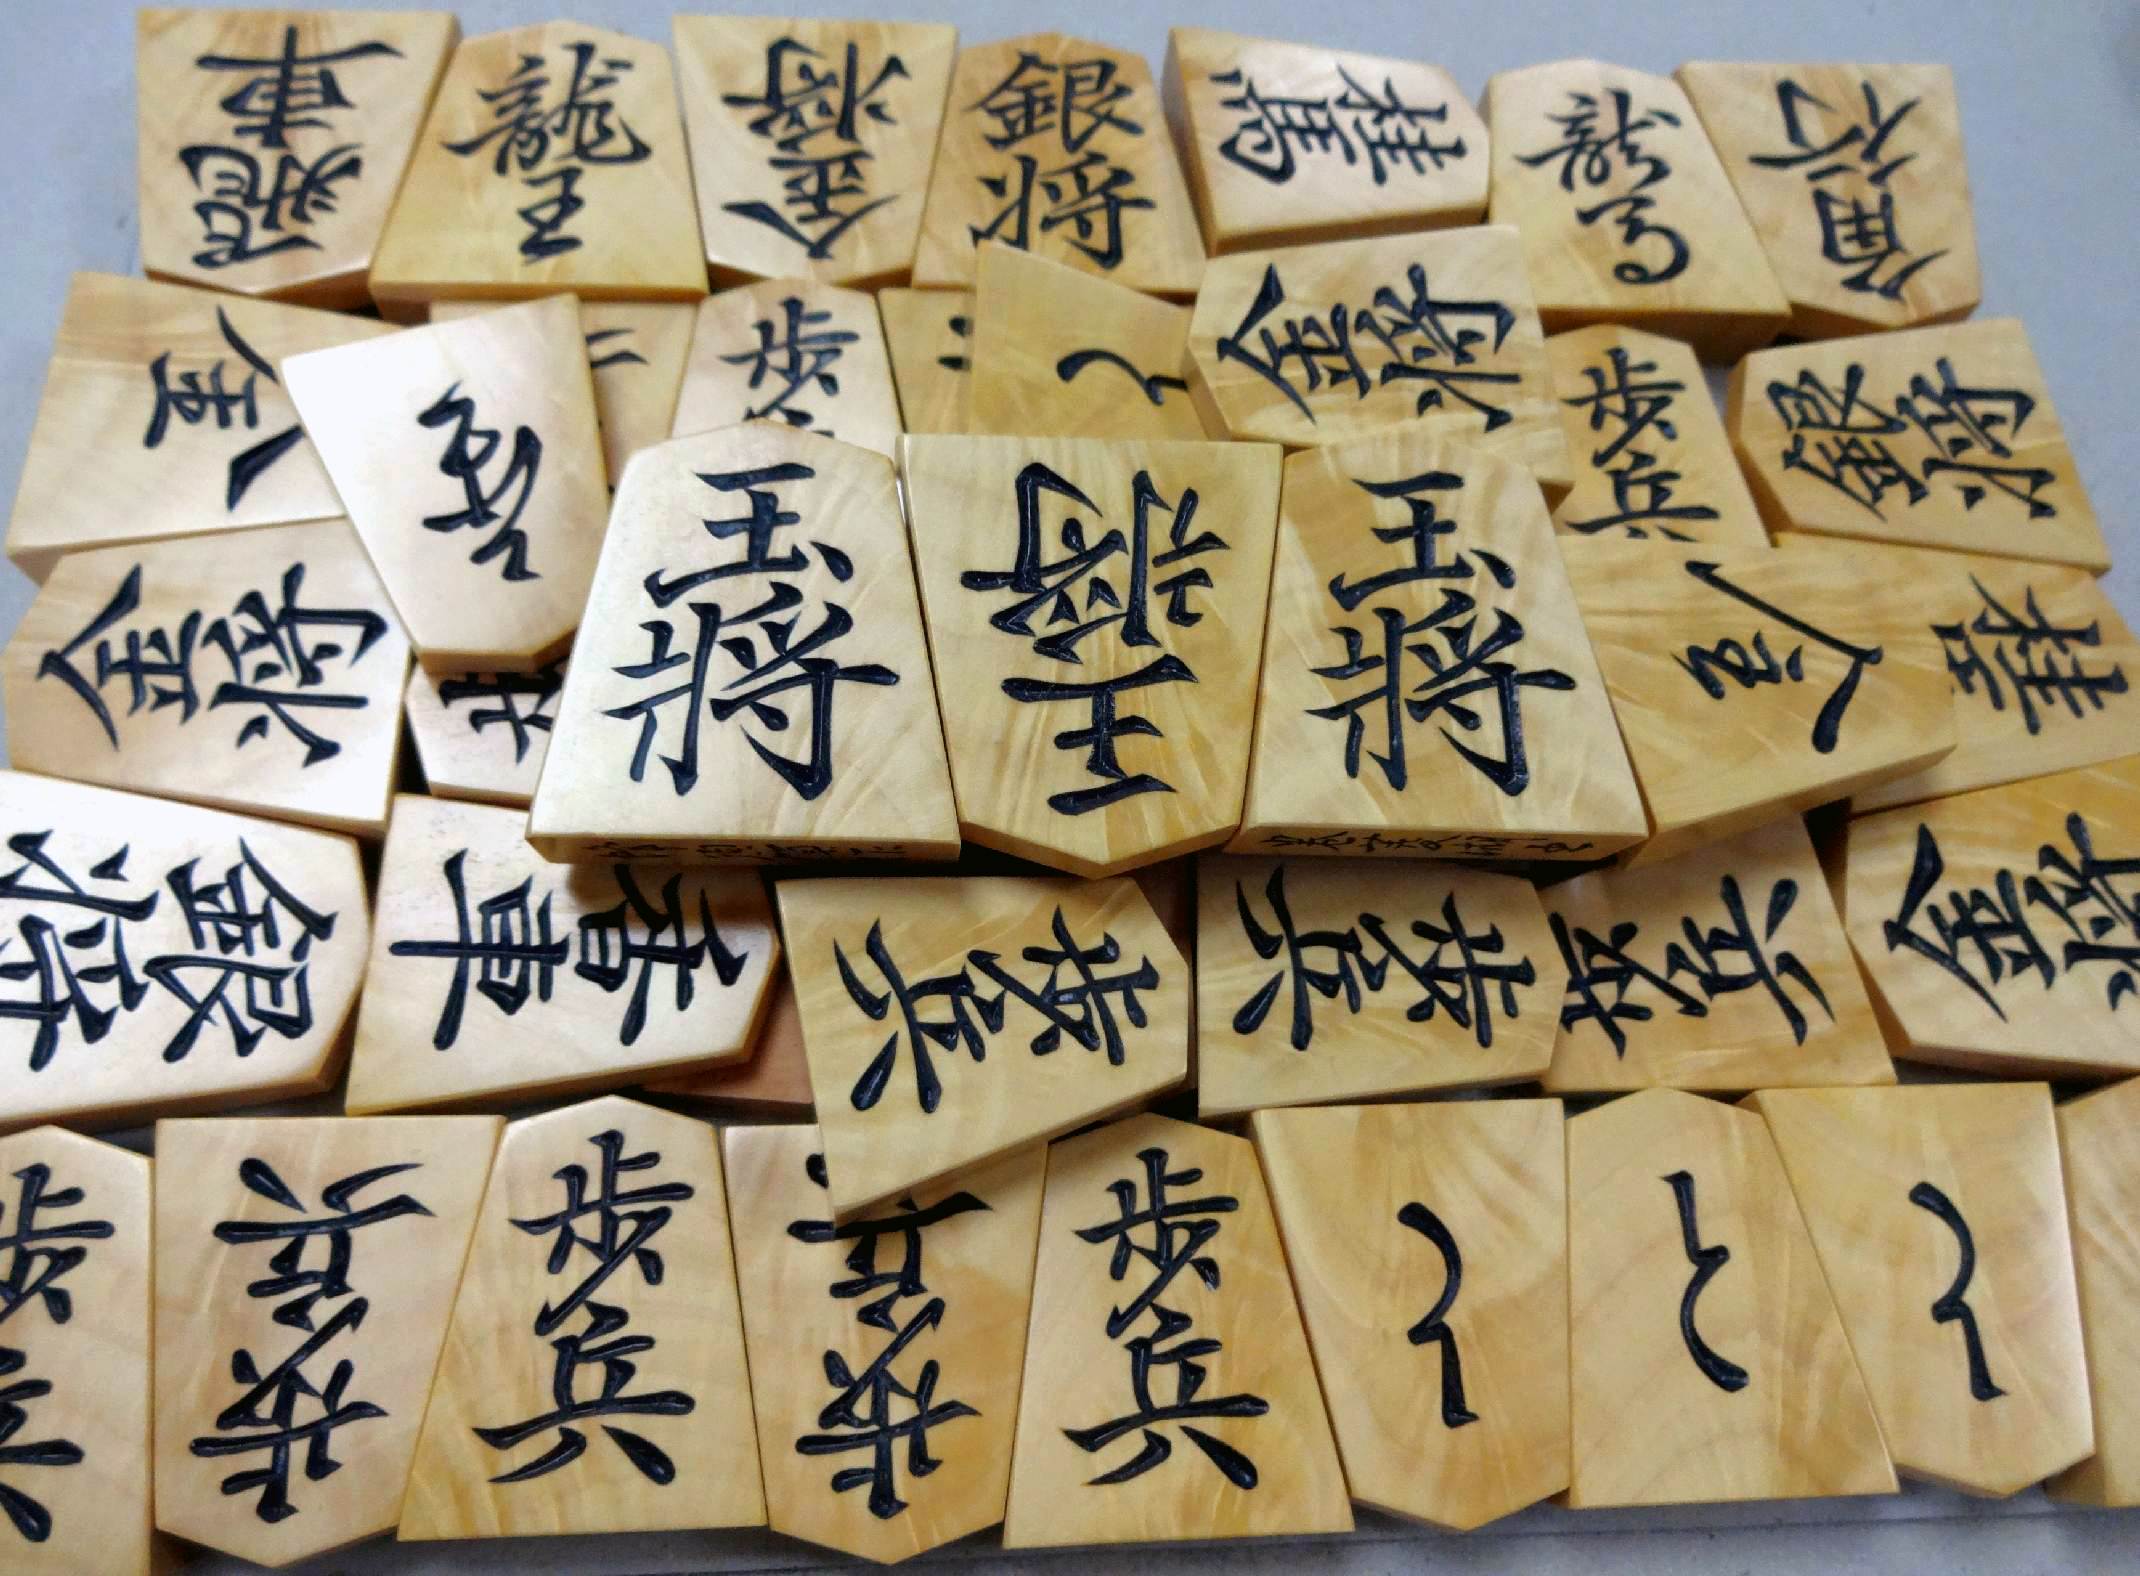 飛車
龍王
金将
銀将
桂馬
龍馬
角行
全
歩
金将
歩兵
銀将
金将
玉將
王將
玉將
桂
銀将
香車
歩兵
歩兵
歩兵
金将
歩兵
歩兵
歩兵
歩兵
歩兵
と
と
と